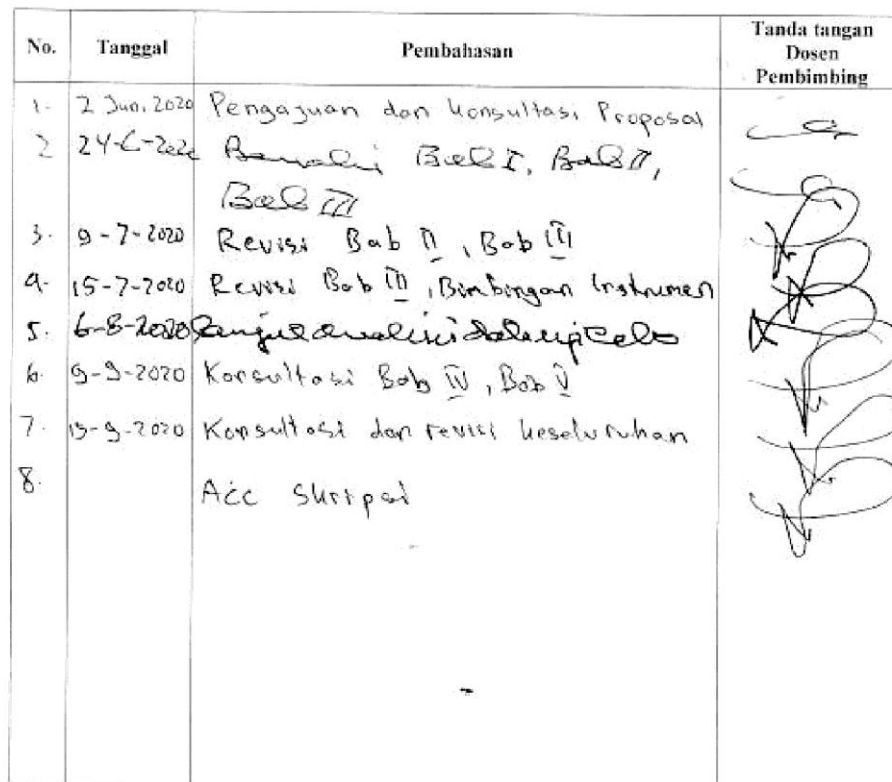 No. Tanggal Pembahasan Tanda tangan Dosen Pembimbing
1. 2 Jun, 2020 Pengajuan dan Konsultasi Proposal
2 24-6-2020 Bab I, Bab II,
Bab III
3. 9-7-2020 Revisi Bab II, Bab III
4. 15-7-2020 Revisi Bab III, Bimbingan Instrumen
5. 6-8-2020
6. 9-9-2020 Konsultasi Bab IV, Bab V
7. 15-9-2020 Konsultasi dan revisi keseluruhan
8. Acc Skripsi